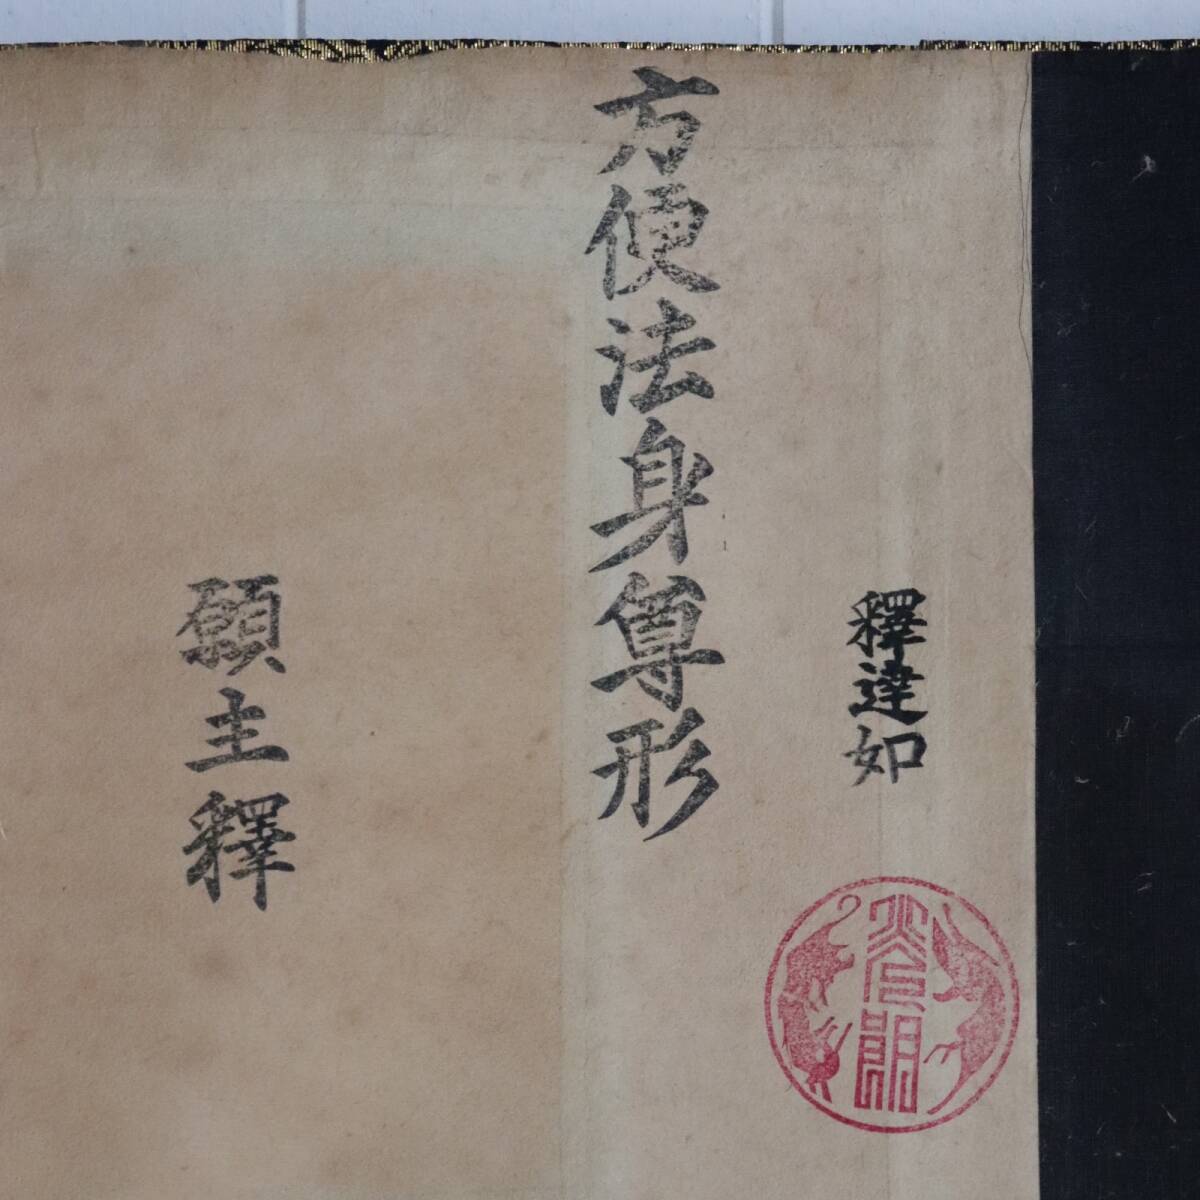 釋達如
方便法身尊形
願主釋